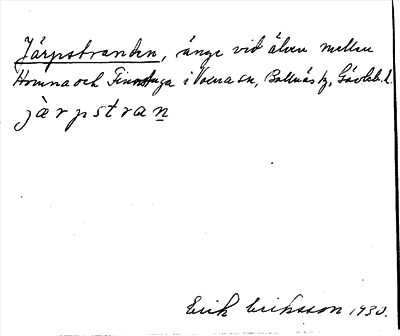 Järpstranden, änge vid älven mellan
Homna och Finnstuga i Voxna sn, Bollnäs tg, Gävleb. l.
järpstran
Erik Eriksson 1930.